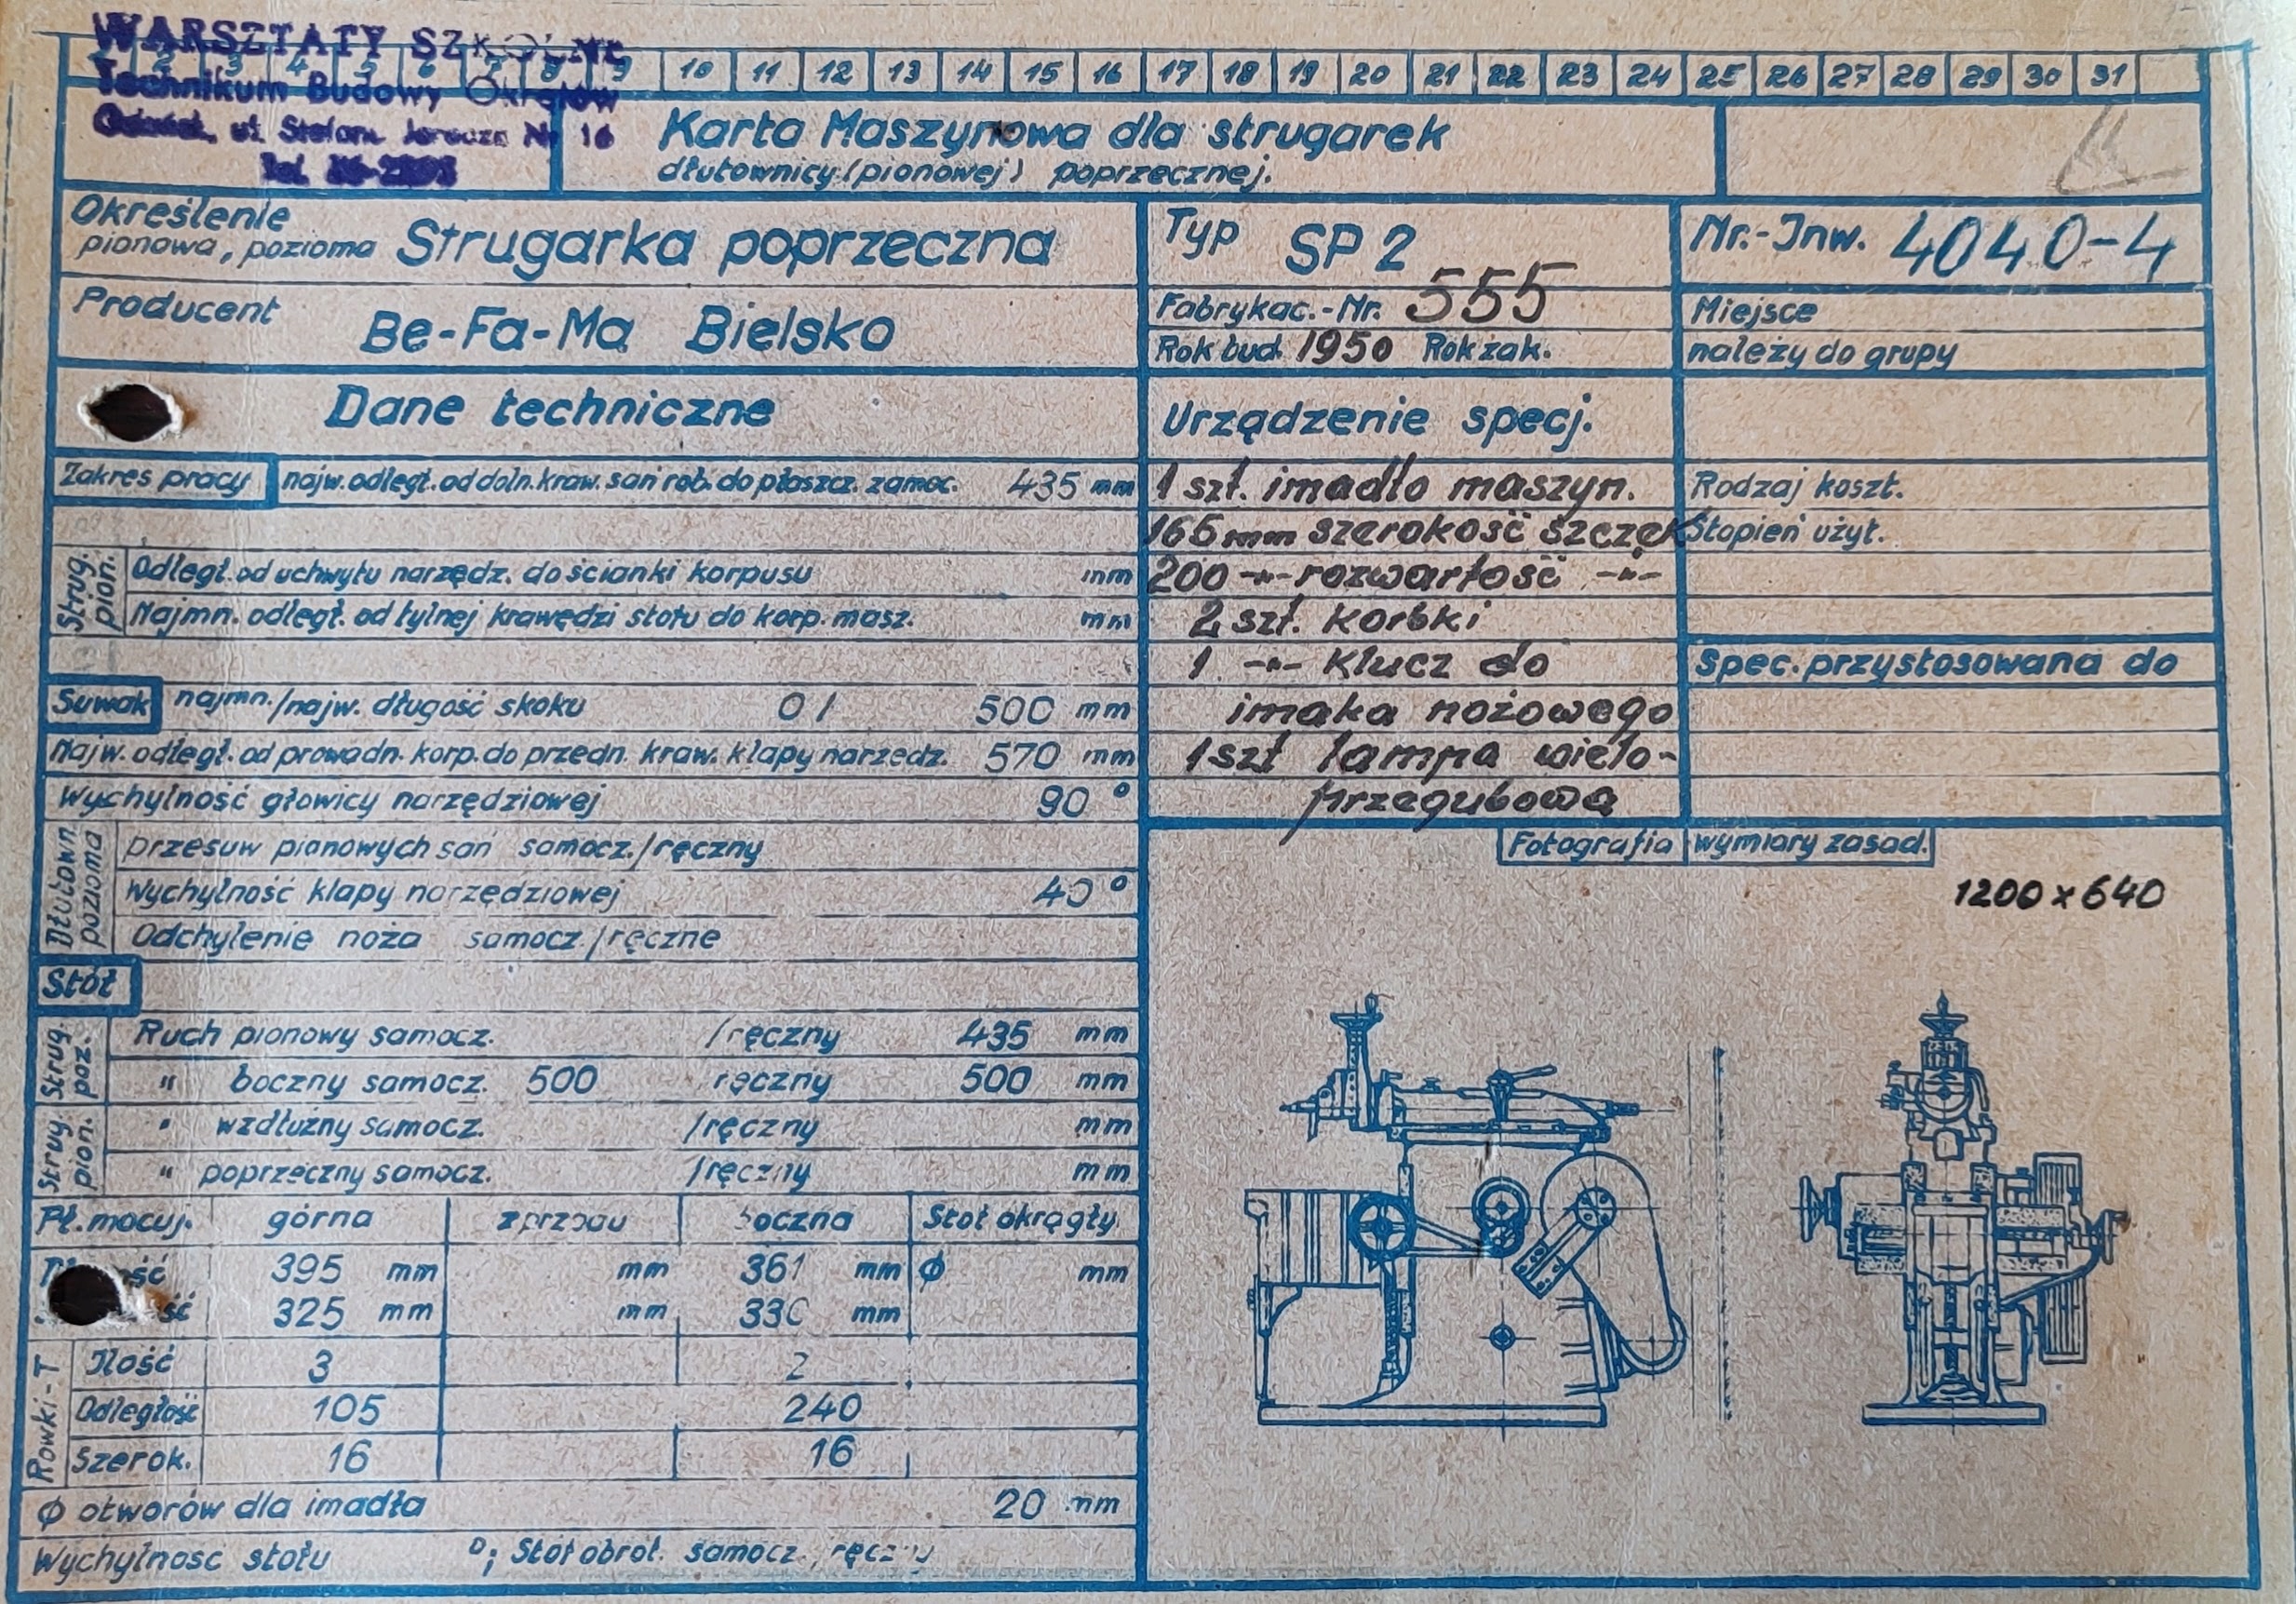 WARSZTATY SZKOLNE
Technikum Budowy Okrętów
ul. Stefana Nr 16
2 3 4 5 6 7 8 9 10 11 12 13 14 15 16 17 18 19 20 21 22 23 24 25 26 27 28 29 30 31
Karta Maszynowa dla strugarek
dłutownicy (pionowej) poprzecznej.
Określenie
pionowa, pozioma Strugarka poprzeczna
Typ SP 2
Nr.-Inw. 4040-4
Producent Be-Fa-Ma Bielsko
Fabrykac.-Nr. 555
Rok bud. 1950 Rok zak.
Miejsce
należy do grupy
Dane techniczne
Zakres pracy najw. odległ. od doln. kraw. sań rob. do płaszcz. zamoc. 435 mm
Strug. pion.
Odległ. od uchwytu narzędz. do ścianki korpusu mm
Najmn. odległ. od tylnej krawędzi stołu do korp. masz. mm
Suwak najmn./najw. długość skoku 0 / 500 mm
Najw. odległ. od prowadn. korp. do przedn. kraw. klapy narzędz. 570 mm
Wychylność głowicy narzędziowej 90 °
Dłutown. pozioma
przesuw pionowych sań samocz./ręczny
Wychylność klapy narzędziowej 40 °
Odchylenie noża samocz./ręczne
Stół
Strug. poz.
Ruch pionowy samocz. /ręczny 435 mm
" boczny samocz. 500 ręczny 500 mm
Strug. pion.
" wzdłużny samocz. /ręczny mm
" poprzeczny samocz. /ręczny mm
Pł. mocuj. górna z przodu boczna Stół okrągły
395 mm mm 361 mm ϕ mm
325 mm mm 330 mm
Rowki-T
Ilość 3 2
Odległość 105 240
Szerok. 16 16
ϕ otworów dla imadła 20 mm
Wychylność stołu °; Stół obrot. samocz., ręczny
Urządzenie specj.
1 szt. imadło maszyn.
165 mm szerokość szczęk
200 -"- rozwartość -"-
2 szt. korbki
1 -"- klucz do
imaka nożowego
1 szt lampa wielo-
przegubowa
Rodzaj koszt.
Stopień użyt.
Spec. przystosowana do
Fotografia wymiary zasad.
1200 x 640